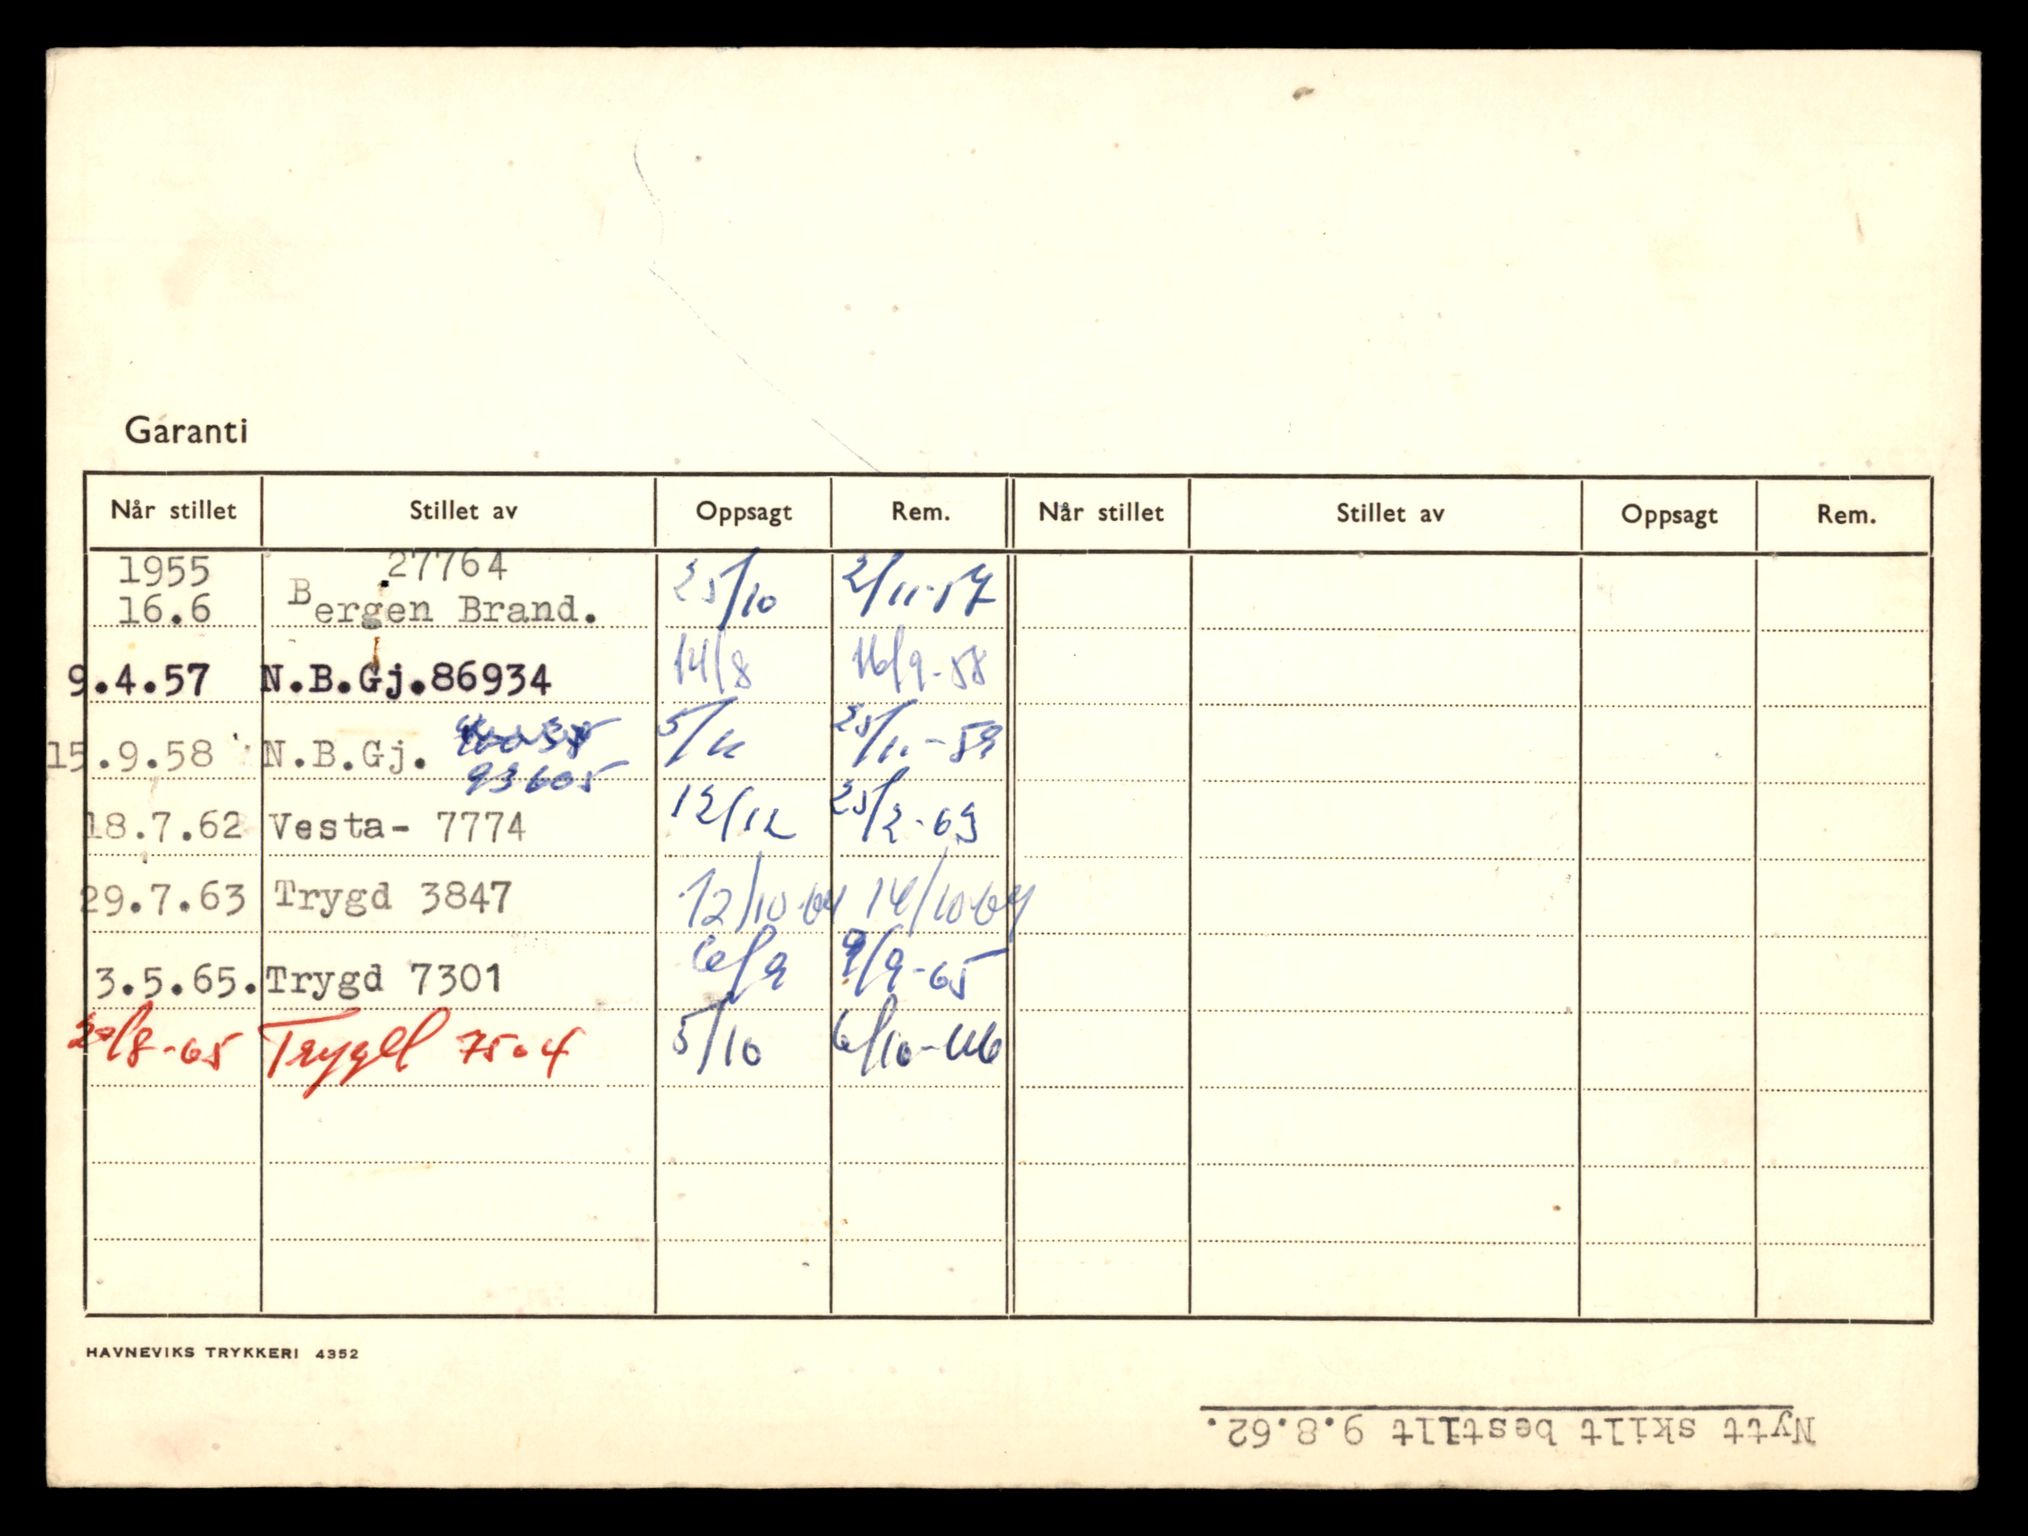 Garanti
Når stillet Stillet av Oppsagt Rem. Når stillet Stillet av Oppsagt Rem.
1955 27764
16.6 Bergen Brand. 25/10 2/11-57
9.4.57 N.B.Gj.86934 14/8 16/9-58
15.9.58 N.B.Gj. 5/11 25/11-59
93605
18.7.62 Vesta- 7774 12/12 25/2-63
29.7.63 Trygd 3847 12/10-64 14/10-64
3.5.65. Trygd 7301 6/9 9/9-65
/8-65 Trygd 7504 5/10 6/10-66
HAVNEVIKS TRYKKERI 4352
Nytt skilt bestilt 9.8.62.